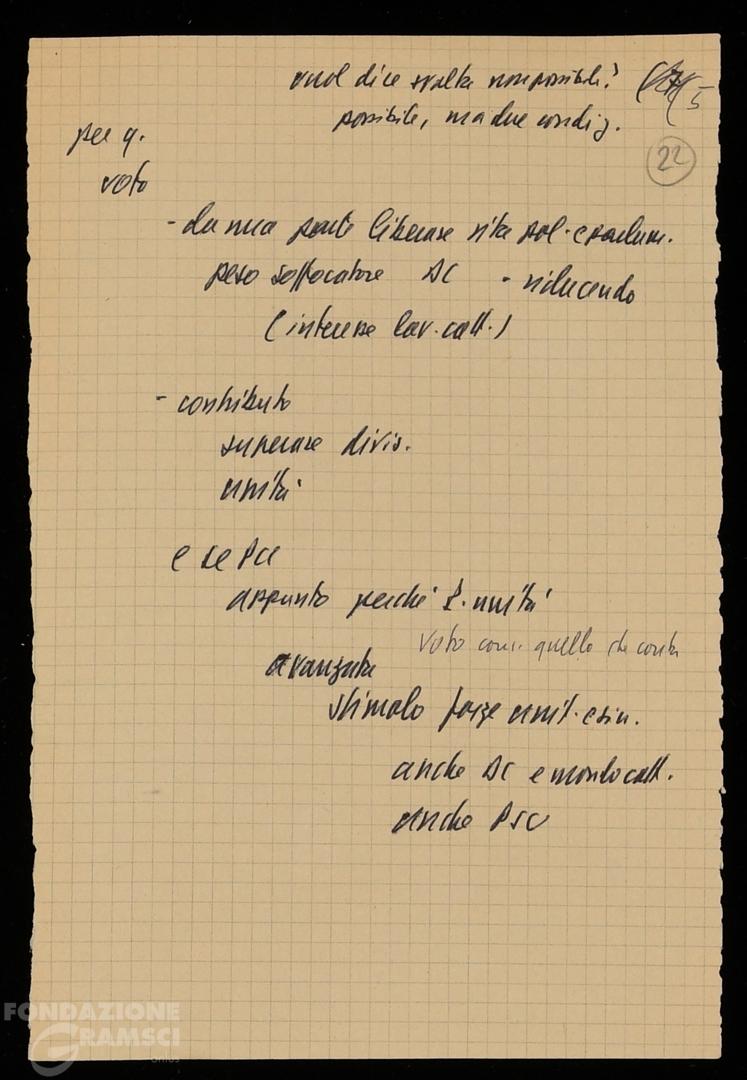 vuol dire svolta non possibile? 5
possibile, ma due condiz.
22
per q.
voto
- da una parte liberare vita pol. e parlam.
peso soffocatore DC - riducendo
(interesse lav. catt.)
- contributo
superare divis.
unità
e se PCI
appunto perché P. unità
voto com. quello che conta
avanzata
stimolo forze unit. e sin.
anche DC e mondo catt.
anche PSU
FONDAZIONE
GRAMSCI
onlus